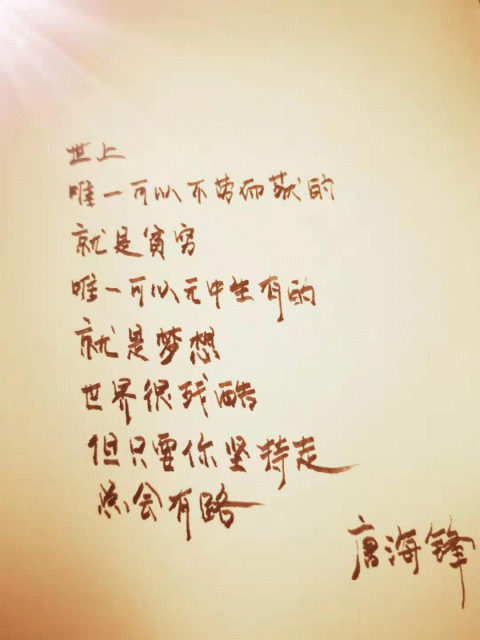 世上
唯一可以不劳而获的
就是貧穷
唯一可以无中生有的
就是梦想
世界很残酷
但只要你坚持走
总会有路
唐海锋